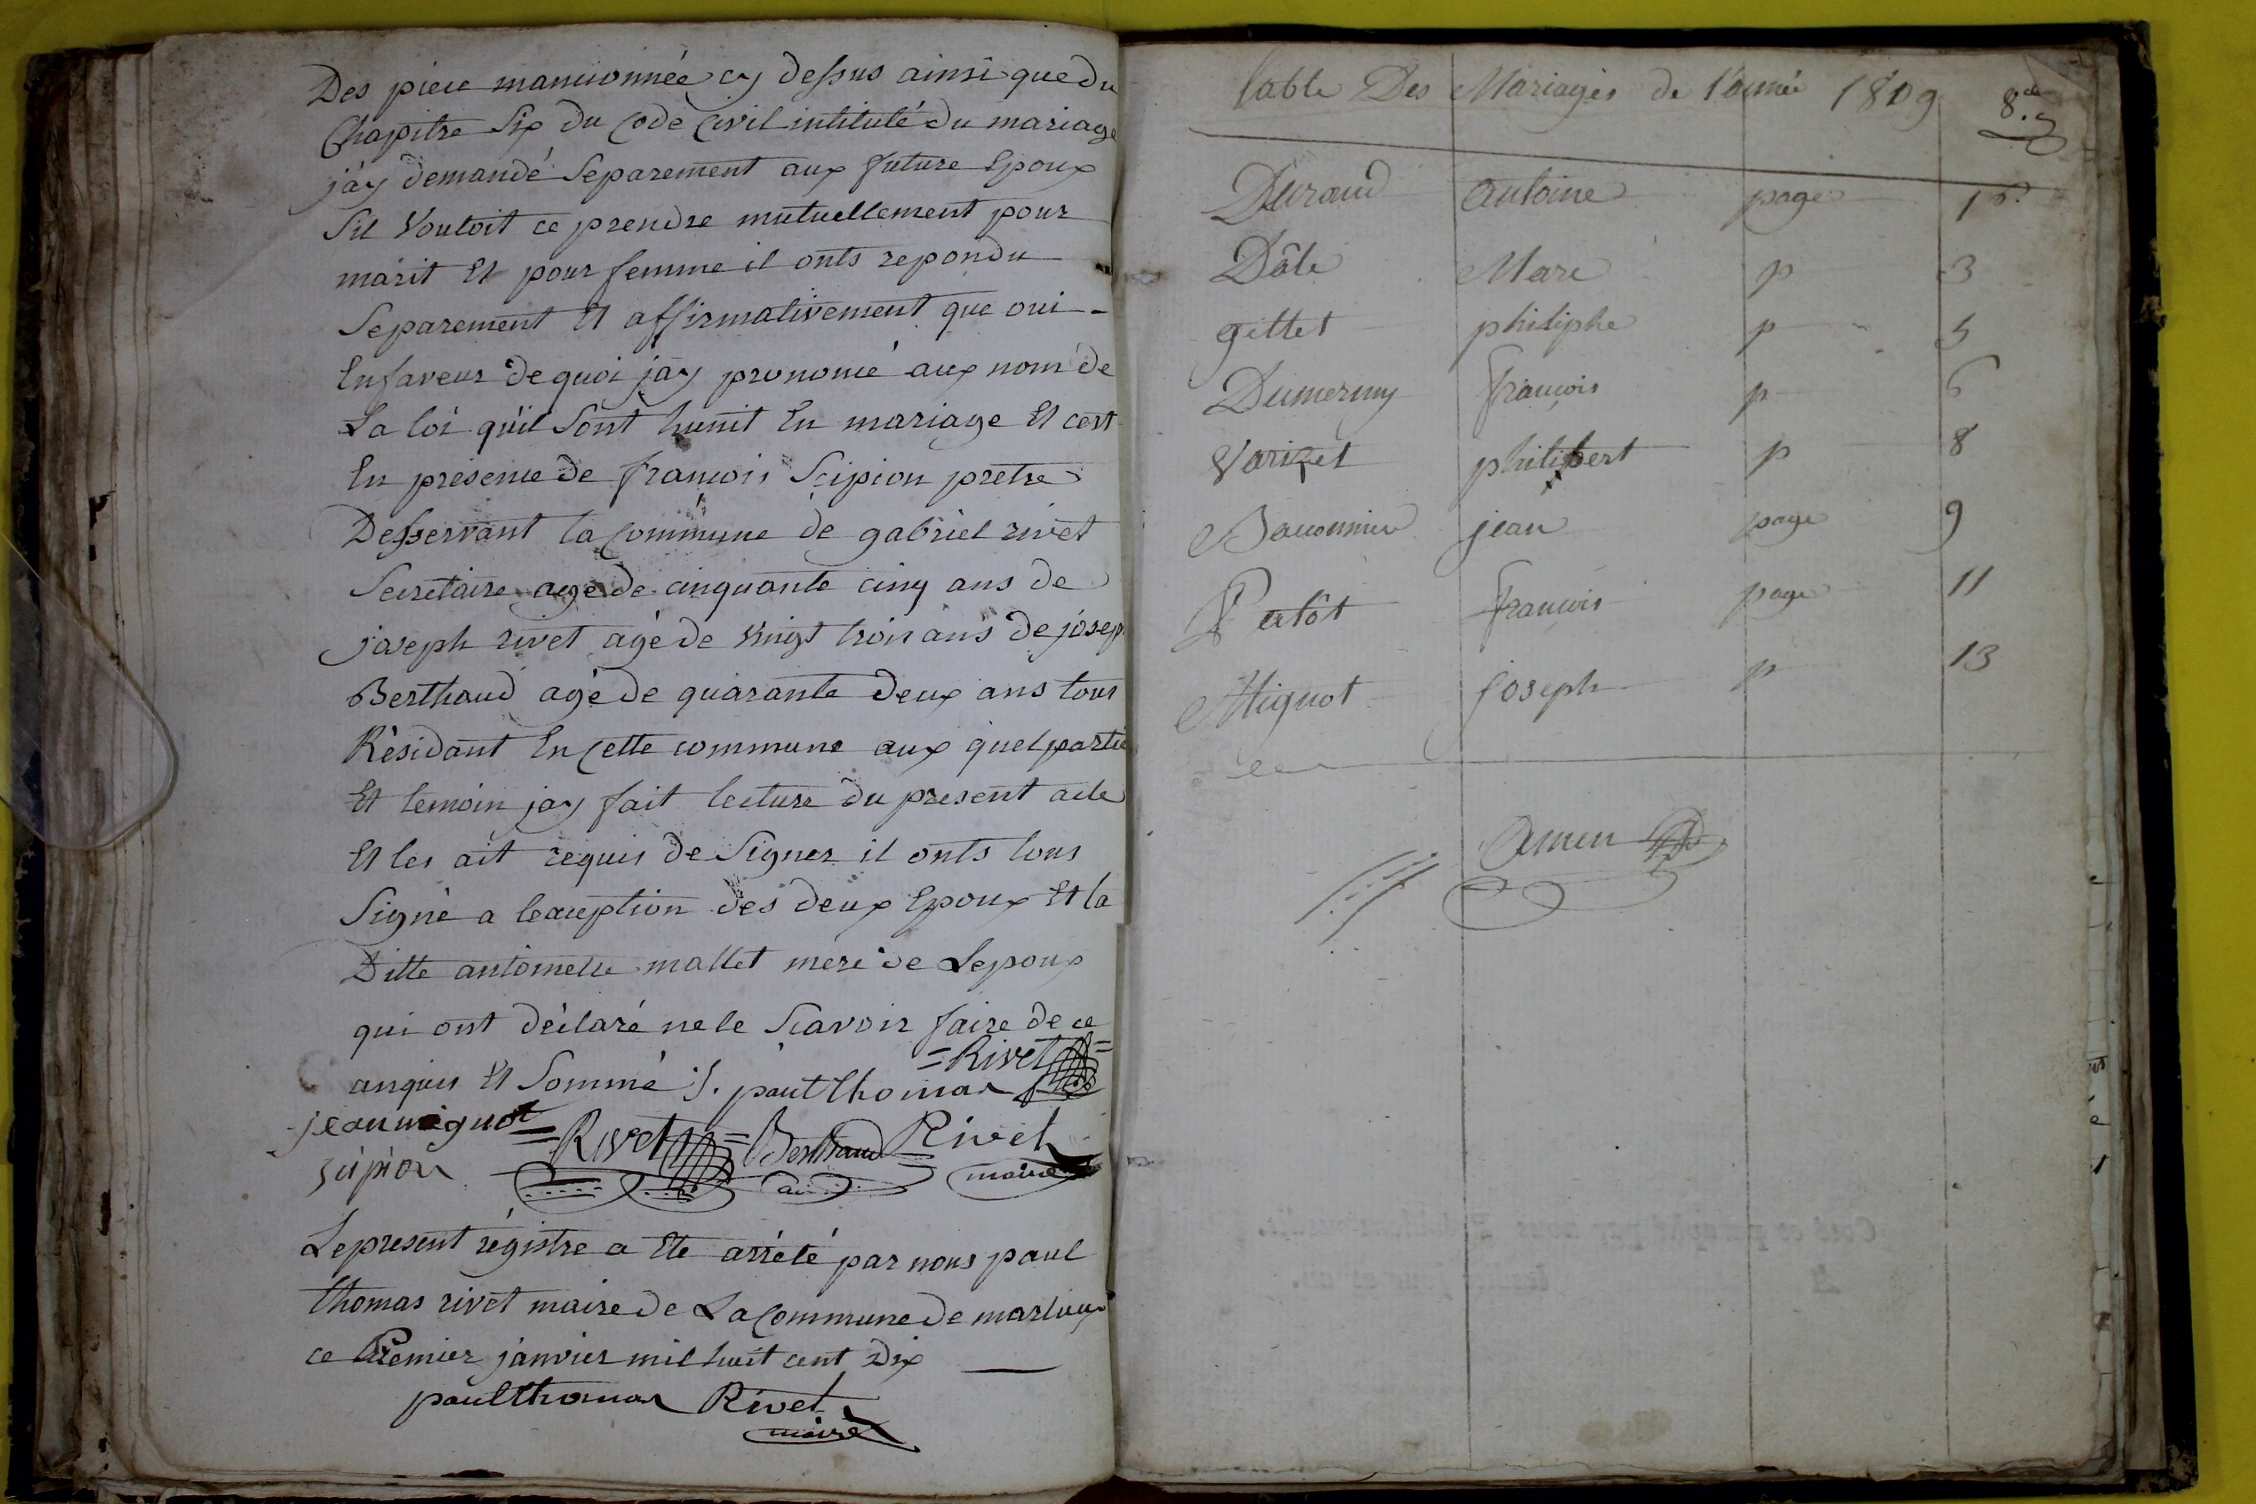 Des piece mansionnée cy dessus ainsi que du
Chapitre Six du Code Civil intitulé du mariage
j'ay demandé Separement aux future Epoux
Sil Vouloit ce prendre mutuellement pour
marit Et pour femme il onts repondu
Separement Et affirmativement que oui -
En faveur de quoi j'ay prononcé aux nom de
La loi qu'il Sont hunit En mariage Et c'est
En présence de francois Scipion prètre
Desservant la Commune de gabriel rivet
Secretaire agé de cinquante cinq ans de
joseph rivet agé de Vingt trois ans de josep
Berthaud agé de quarante Deux ans tous
Résidant En Cette commune aux quel partie
Et temoin jay fait lecture du present acte
Et les ait requis de Signer il onts tous
Signé a leception des deux Epoux Et la
Ditte antoinette mallet mere de Lepoux
qui ont déclaré ne le Scavoir faire de ce
= Rivet =
anquis Et Sommé ./. paul thomas
jean mignot = Rivet = Berthaud Rivet
scipion maire
Le present régistre a Ete arrété par nous paul
thomas rivet maire de La Commune de marlieux
ce Premier janvier mil huit cent Dix
paul thomas Rivet
maire
table Des Mariages de l'année 1809
Durand antoine page 1
Dâle Marc p 3
gillet philiphe p 5
Dumerny françois p 6
Varizet philibert p 8
jean page 9
françois page 11
Mignot joseph p 13
Amen